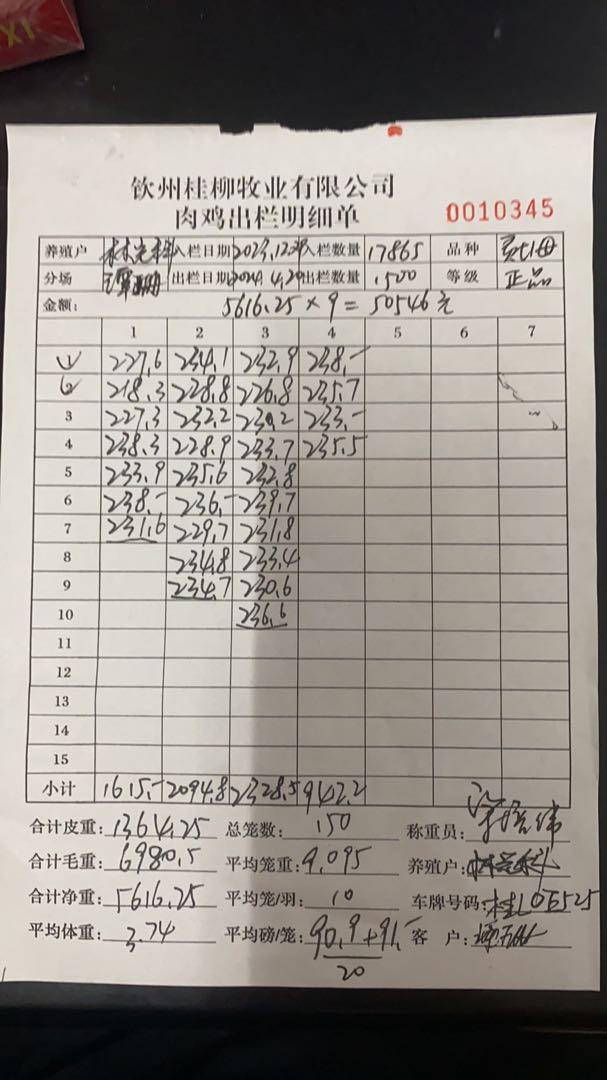 钦州桂柳牧业有限公司
肉鸡出栏明细单
0010345
养殖户 入栏日期 2023.12.29 入栏数量 17865 品种
分场 出栏日期 2024.4.20 出栏数量 1500 等级 正品
金额: 5616.25 × 9 = 50546元
1 2 3 4 5 6 7
1 227.6 234.1 232.9 238.-
2 218.3 228.8 226.8 235.7
3 227.3 232.2 230.2 233.-
4 238.3 228.9 233.7 235.5
5 233.9 235.6 232.8
6 238.- 236.- 239.7
7 231.6 229.7 231.8
8 234.8 233.4
9 234.7 230.6
10 236.6
11
12
13
14
15
小计 1615.- 2094.8 2328.5 942.2
合计皮重: 1364.25 总笼数: 150 称重员:
合计毛重: 6980.5 平均笼重: 9.095 养殖户:
合计净重: 5616.25 平均笼/羽: 10 车牌号码: 桂L0E525
平均体重: 3.74 平均磅/笼: 90.9+91.- 客 户:
20